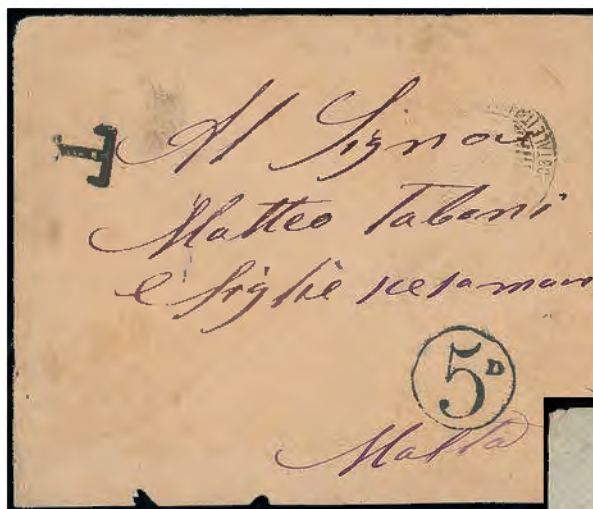 T
Al Signor
Matteo Taboni
e figlie
5D
Malta